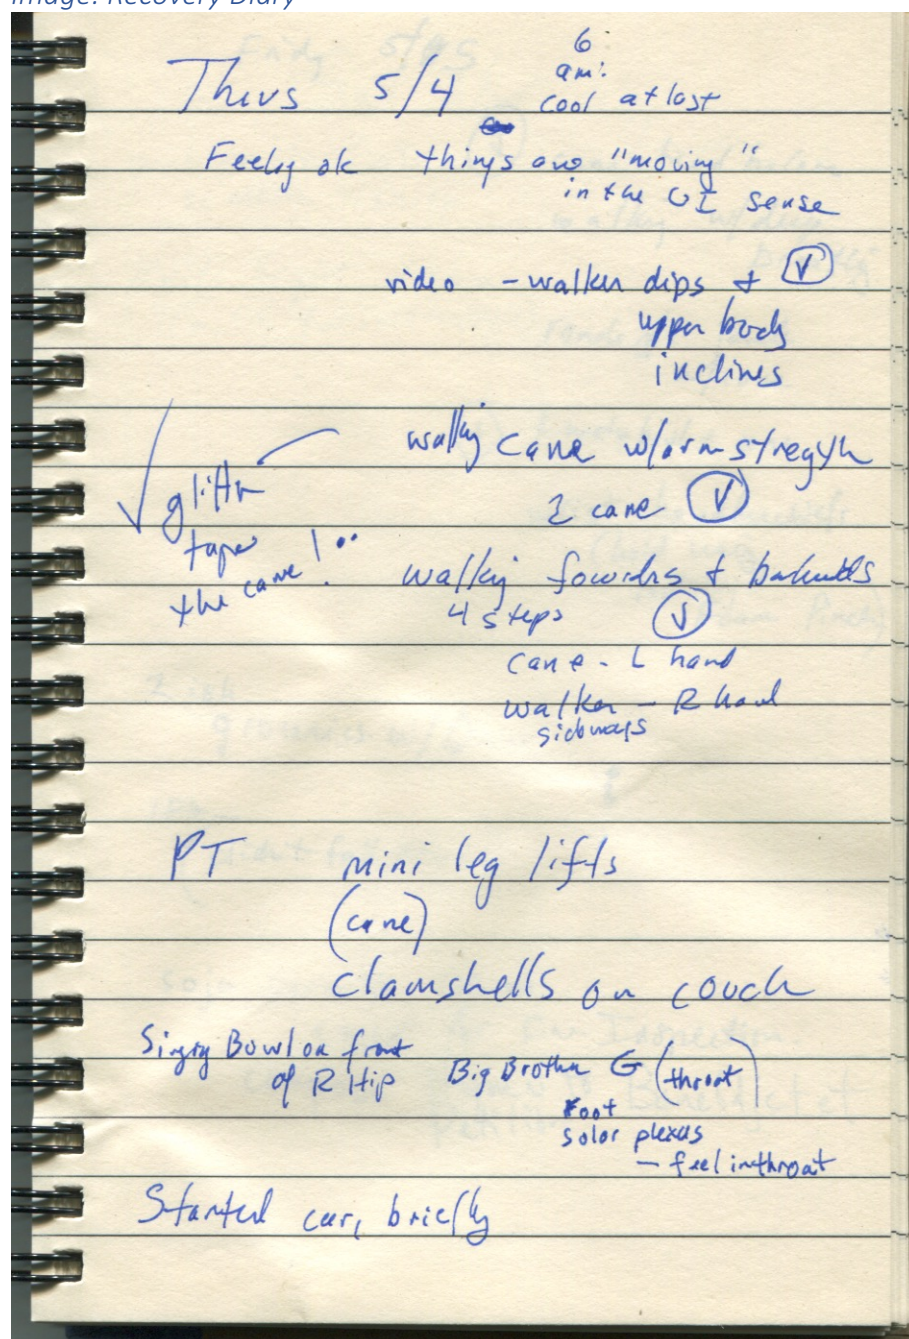 Image: Recovery Diary
Thurs 5/4
6
am:
cool at last
Feeling ok things are "moving"
in the GI sense
video - walker dips +
upper body
inclines
walking cane w/arm strength
2 cane
glitter
tape
the cane!
walking forwards + backwards
4 steps
cane - L hand
walker - R hand
sideways
PT mini leg lifts
(cane)
clamshells on couch
Singing Bowl on front
of R Hip
Big Brother G (throat)
root
solar plexus
- feel in throat
Started car, briefly